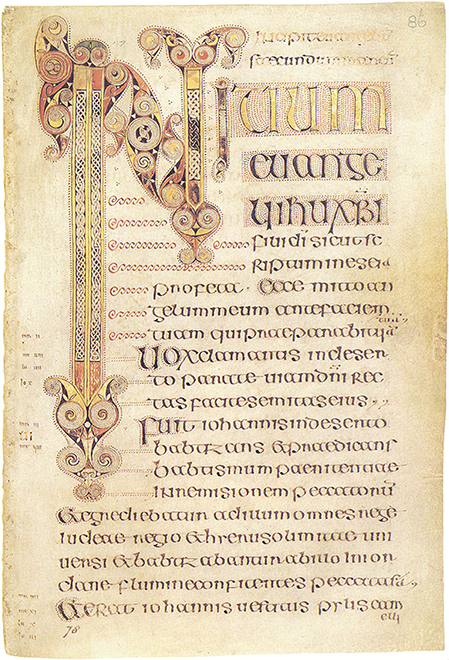 86
secundum marcum
INITIUM
euange
lii ihu xpi
filii di sicut sc
riptum in eseia
profeta · Ecce mitto an
gelum meum ante faciem
tuam qui praeparabit uiā
tuā
Uox clamantis in deser
to parate uiam dni rec
tas facite semitas eius
Fuit iohannis in deserto
babtizans & praedicans
babtismum paenitentiae
in remisionem peccatorū
& egrediebatur ad illum omnes
iudeae regio & hierusolimitae uni
uersi & babtizabantur ab illo in ior
dane flumine confitentes peccata sua
& erat iohannis uestitus pylis cam
elli
78